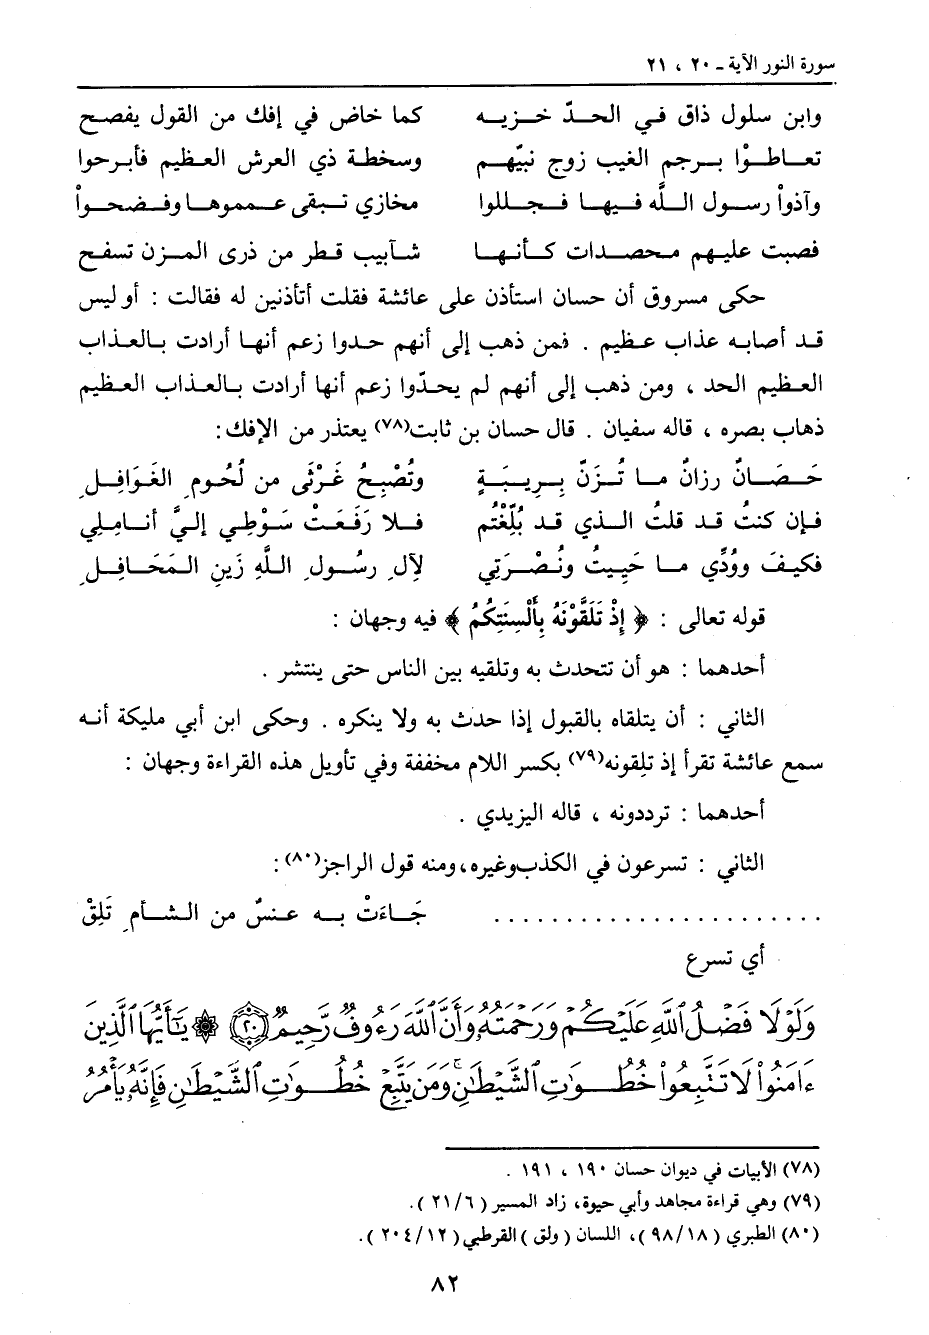 سورة النور الآية ـ ٢٠ ، ٢١
وابن سلول ذاق في الحدّ خزيه كما خاض في إفك من القول يفصح
تعاطوْا برجم الغيب زوج نبيّهم وسخطة ذي العرش العظيم فأبرحوا
وآذواْ رسول اللَّه فيها فجللوا مخازي تبقى عمموها وفضحواْ
فصبت عليهم محصدات كأنها شآبيب قطر من ذرى المزن تسفح
حكى مسروق أن حسان استأذن على عائشة فقلت أتأذنين له فقالت : أو ليس
قد أصابه عذاب عظيم . فمن ذهب إلى أنهم حدوا زعم أنها أرادت بالعذاب
العظيم الحد ، ومن ذهب إلى أنهم لم يحدّوا زعم أنها أرادت بالعذاب العظيم
ذهاب بصره ، قاله سفيان . قال حسان بن ثابت(٧٨) يعتذر من الإفك :
حَصَانٌ رزانٌ ما تُزَنّ بِرِيبَةٍ وتُصْبِحُ غَرْثَى من لُحُومِ الغَوَافِلِ
فإن كنتُ قد قلتُ الذي قد بُلِّغْتُم فلا رَفَعَتْ سَوْطِي إليَّ أنامِلِي
فكيفَ ووُدِّي ما حَيِيتُ ونُصْرَتِي لآلِ رسُولِ اللَّهِ زَينِ المَحَافِلِ
قوله تعالى : ﴿ إِذْ تَلَقَّوْنَهُ بِأَلْسِنَتِكُمْ ﴾ فيه وجهان :
أحدهما : هو أن تتحدث به وتلقيه بين الناس حتى ينتشر .
الثاني : أن يتلقاه بالقبول إذا حدث به ولا ينكره . وحكى ابن أبي مليكة أنه
سمع عائشة تقرأ إذ تلِقونه(٧٩) بكسر اللام مخففة وفي تأويل هذه القراءة وجهان :
أحدهما : ترددونه ، قاله اليزيدي .
الثاني : تسرعون في الكذب وغيره ، ومنه قول الراجز(٨٠) :
....................... جَاءَتْ به عنسٌ من الشأمِ تَلِقْ
أي تسرع
وَلَوْلَا فَضْلُ ٱللَّهِ عَلَيْكُمْ وَرَحْمَتُهُۥ وَأَنَّ ٱللَّهَ رَءُوفٌ رَّحِيمٌ ﴿٢٠﴾ ۞ يَٰٓأَيُّهَا ٱلَّذِينَ
ءَامَنُوا۟ لَا تَتَّبِعُوا۟ خُطُوَٰتِ ٱلشَّيْطَٰنِ ۚ وَمَن يَتَّبِعْ خُطُوَٰتِ ٱلشَّيْطَٰنِ فَإِنَّهُۥ يَأْمُرُ
(٧٨) الأبيات في ديوان حسان ١٩٠ ، ١٩١ .
(٧٩) وهي قراءة مجاهد وأبي حيوة، زاد المسير ( ٦/ ٢١ ) .
(٨٠) الطبري ( ١٨/ ٩٨ )، اللسان ( ولق ) القرطبي ( ١٢/ ٢٠٤ ) .
٨٢